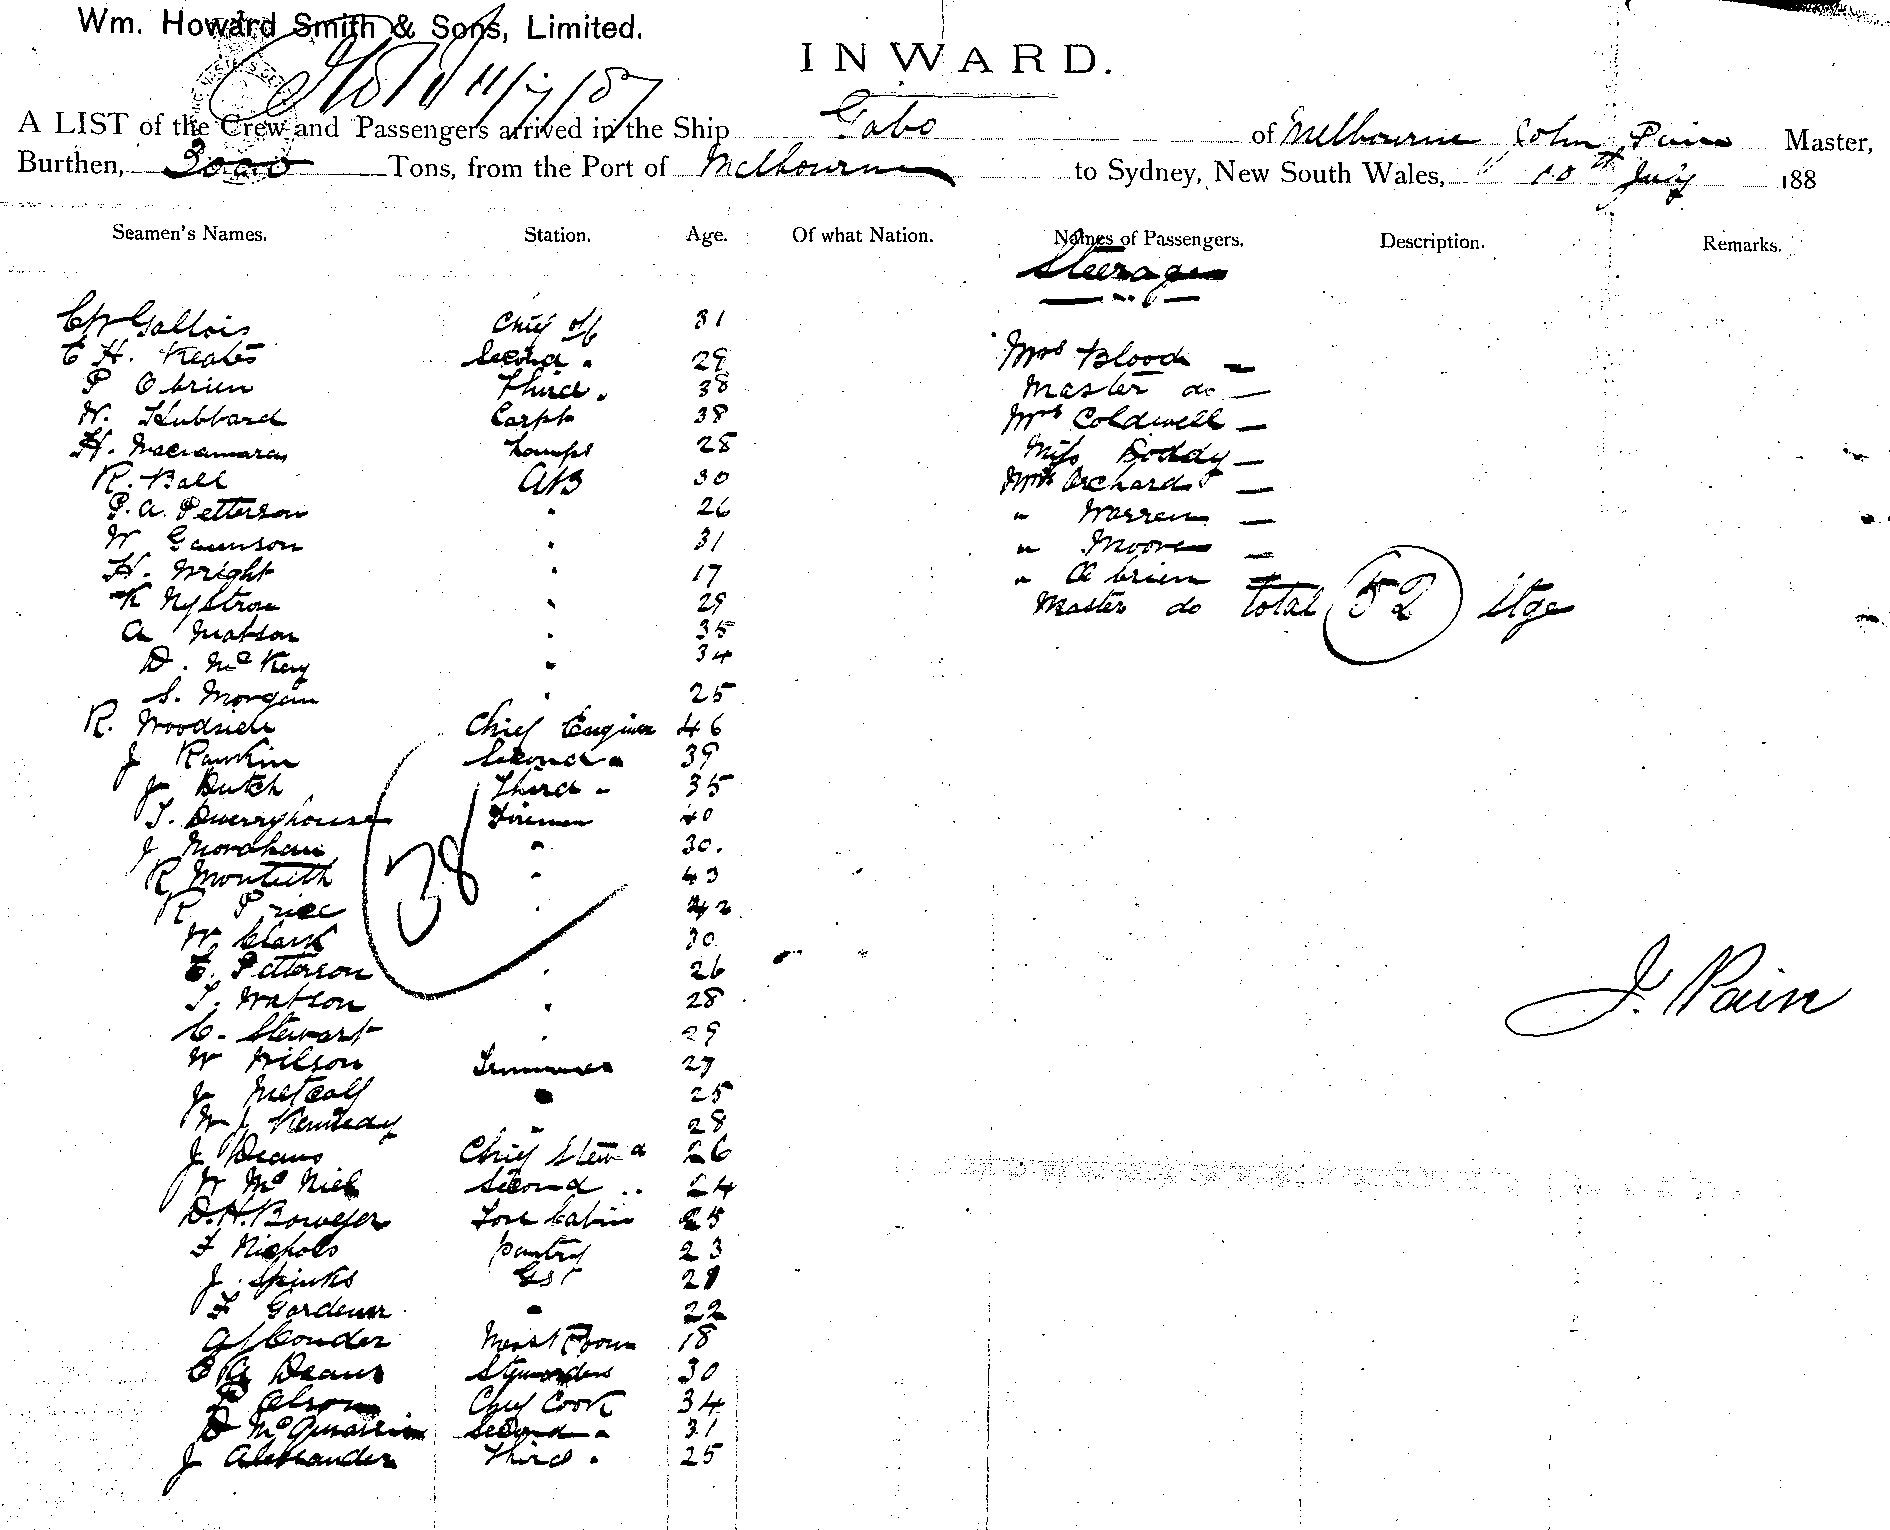 Wm. Howard Smith & Sons, Limited.
INWARD.
11/7/87
A LIST of the Crew and Passengers arrived in the Ship Gabo of Melbourne John Pain Master,
Burthen, 3000 Tons, from the Port of Melbourne to Sydney, New South Wales, 10th July 188
Seamen's Names. Station. Age. Of what Nation. Names of Passengers. Description. Remarks.
Steerage
Gallois Chief off 31
E H. Keates Second " 29 Mrs Blood —
P Obrien Third " 38 Master do —
W. Hubbard Carpt 38 Mrs Coldwell —
H. Macnamara Lamps 28 Miss Boddy —
R. Ball AB 30 Mrs Orchard —
P. A. Petterson " 26 " Warren —
W Gaunson " 31 " Moore —
H. Wright " 17 " O brien —
K Nystrom " 29 Master do total 52 Stge
A Matson " 35
D. McKay " 34
S. Morgan " 25
R. Woodside Chief Engineer 46
J Rankin Second " 39
J Dutch Third " 35
T. Dwerryhouse Firemen 40
J Mordhani " 30.
R Montieth " 43
R Price " 42
38
W Clark 30
E. Petterson " 26
T. Watson " 28
C. Stewart " 29
J. Pain
W Wilson Trimmer 27
J Metcalf " 25
W J Kennedy " 28
J Deans Chief Stewd 26
W McNiel Second " 24
D. H. Bowyer Fore Cabin 25
F Nichols Pantry 23
J. Spinks 29
F Gardener " 22
Couder Mess Room 18
E A Deans Stewardess 30
P Chief Cook 34
D McQuarrie Second " 31
J Alexander Third " 25